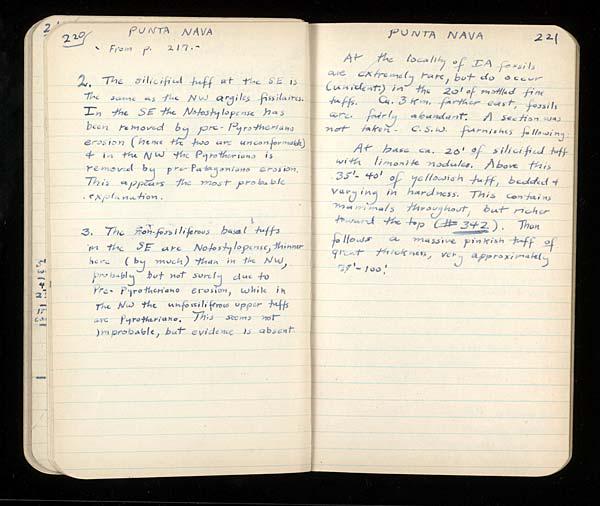 220
PUNTA NAVA
- From p. 217.-
2. The silicified tuff at the SE is
the same as the NW argiles fissilaires.
In the SE the Notostylopense has
been removed by pre-Pyrotheriano
erosion (hence the two are unconformable)
+ in the NW the Pyrotheriano is
removed by pre-Patagoniano erosion.
This appears the most probable
explanation.
3. The non-fossiliferous basal tuffs
in the SE are Notostylopense, thinner
here (by much) than in the NW,
probably but not surely due to
Pre-Pyrotheriano erosion, while in
the NW the unfossiliferous upper tuffs
are Pyrotheriano. This seems not
improbable, but evidence is absent.
PUNTA NAVA
221
At the locality of IA fossils
are extremely rare, but do occur
(unident.) in the 20' of mottled fine
tuffs. Ca. 3 km. farther east, fossils
are fairly abundant. A section was
not taken. C.S.W. furnishes following.
At base ca. 20' of silicified tuff
with limonite nodules. Above this
35'-40' of yellowish tuff, bedded +
varying in hardness. This contains
mammals throughout, but richer
toward the top (#342). Then
follows a massive pinkish tuff of
great thickness, very approximately
-100'